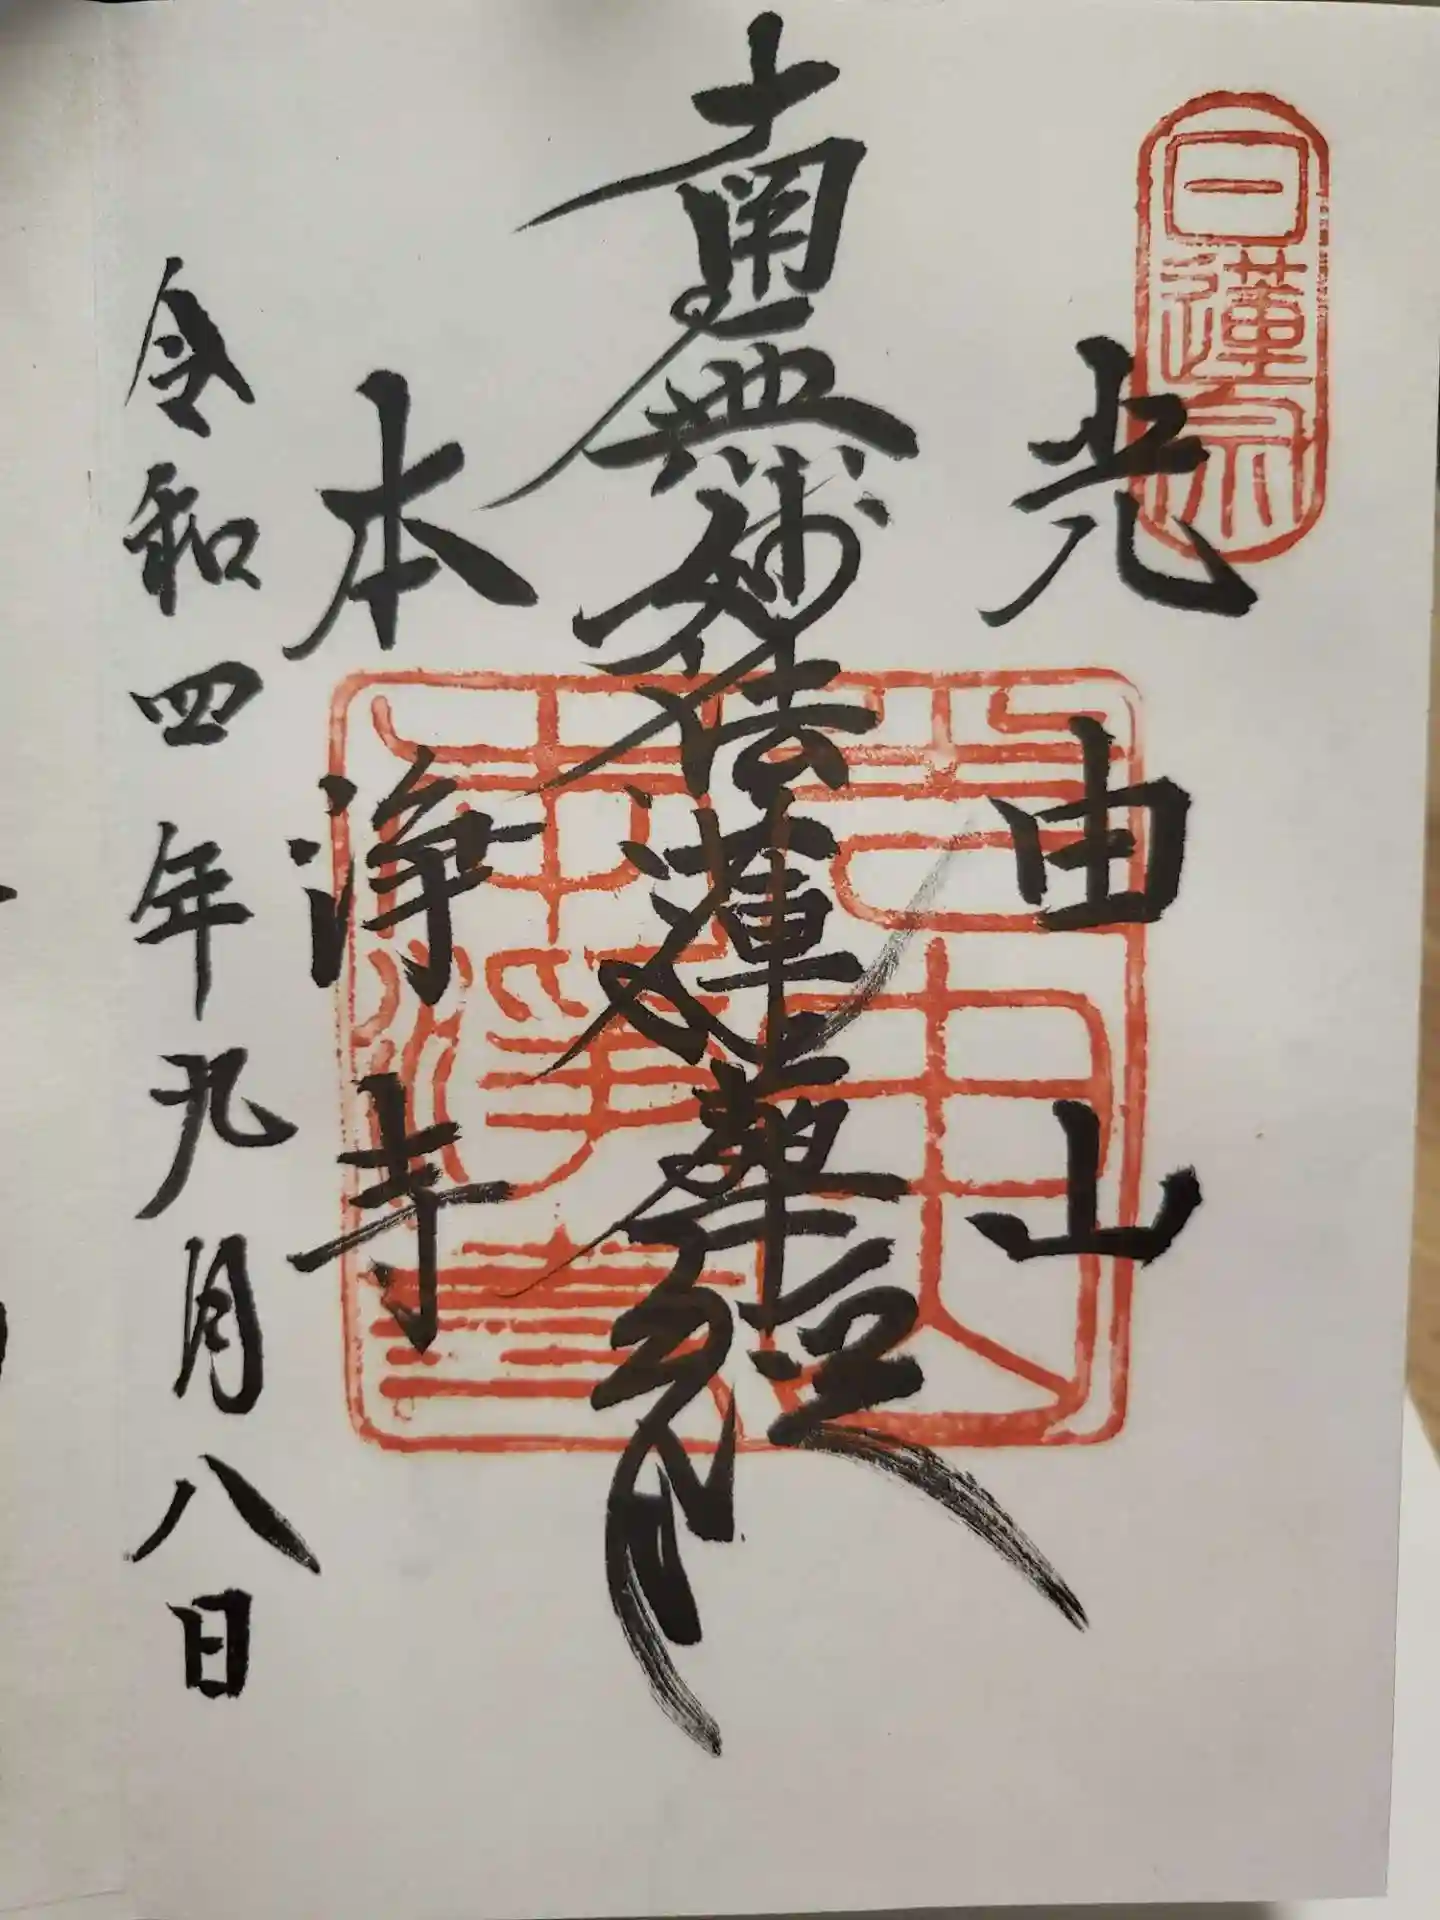 日蓮宗
光由山
南無妙法蓮華経
本浄寺
令和四年九月八日